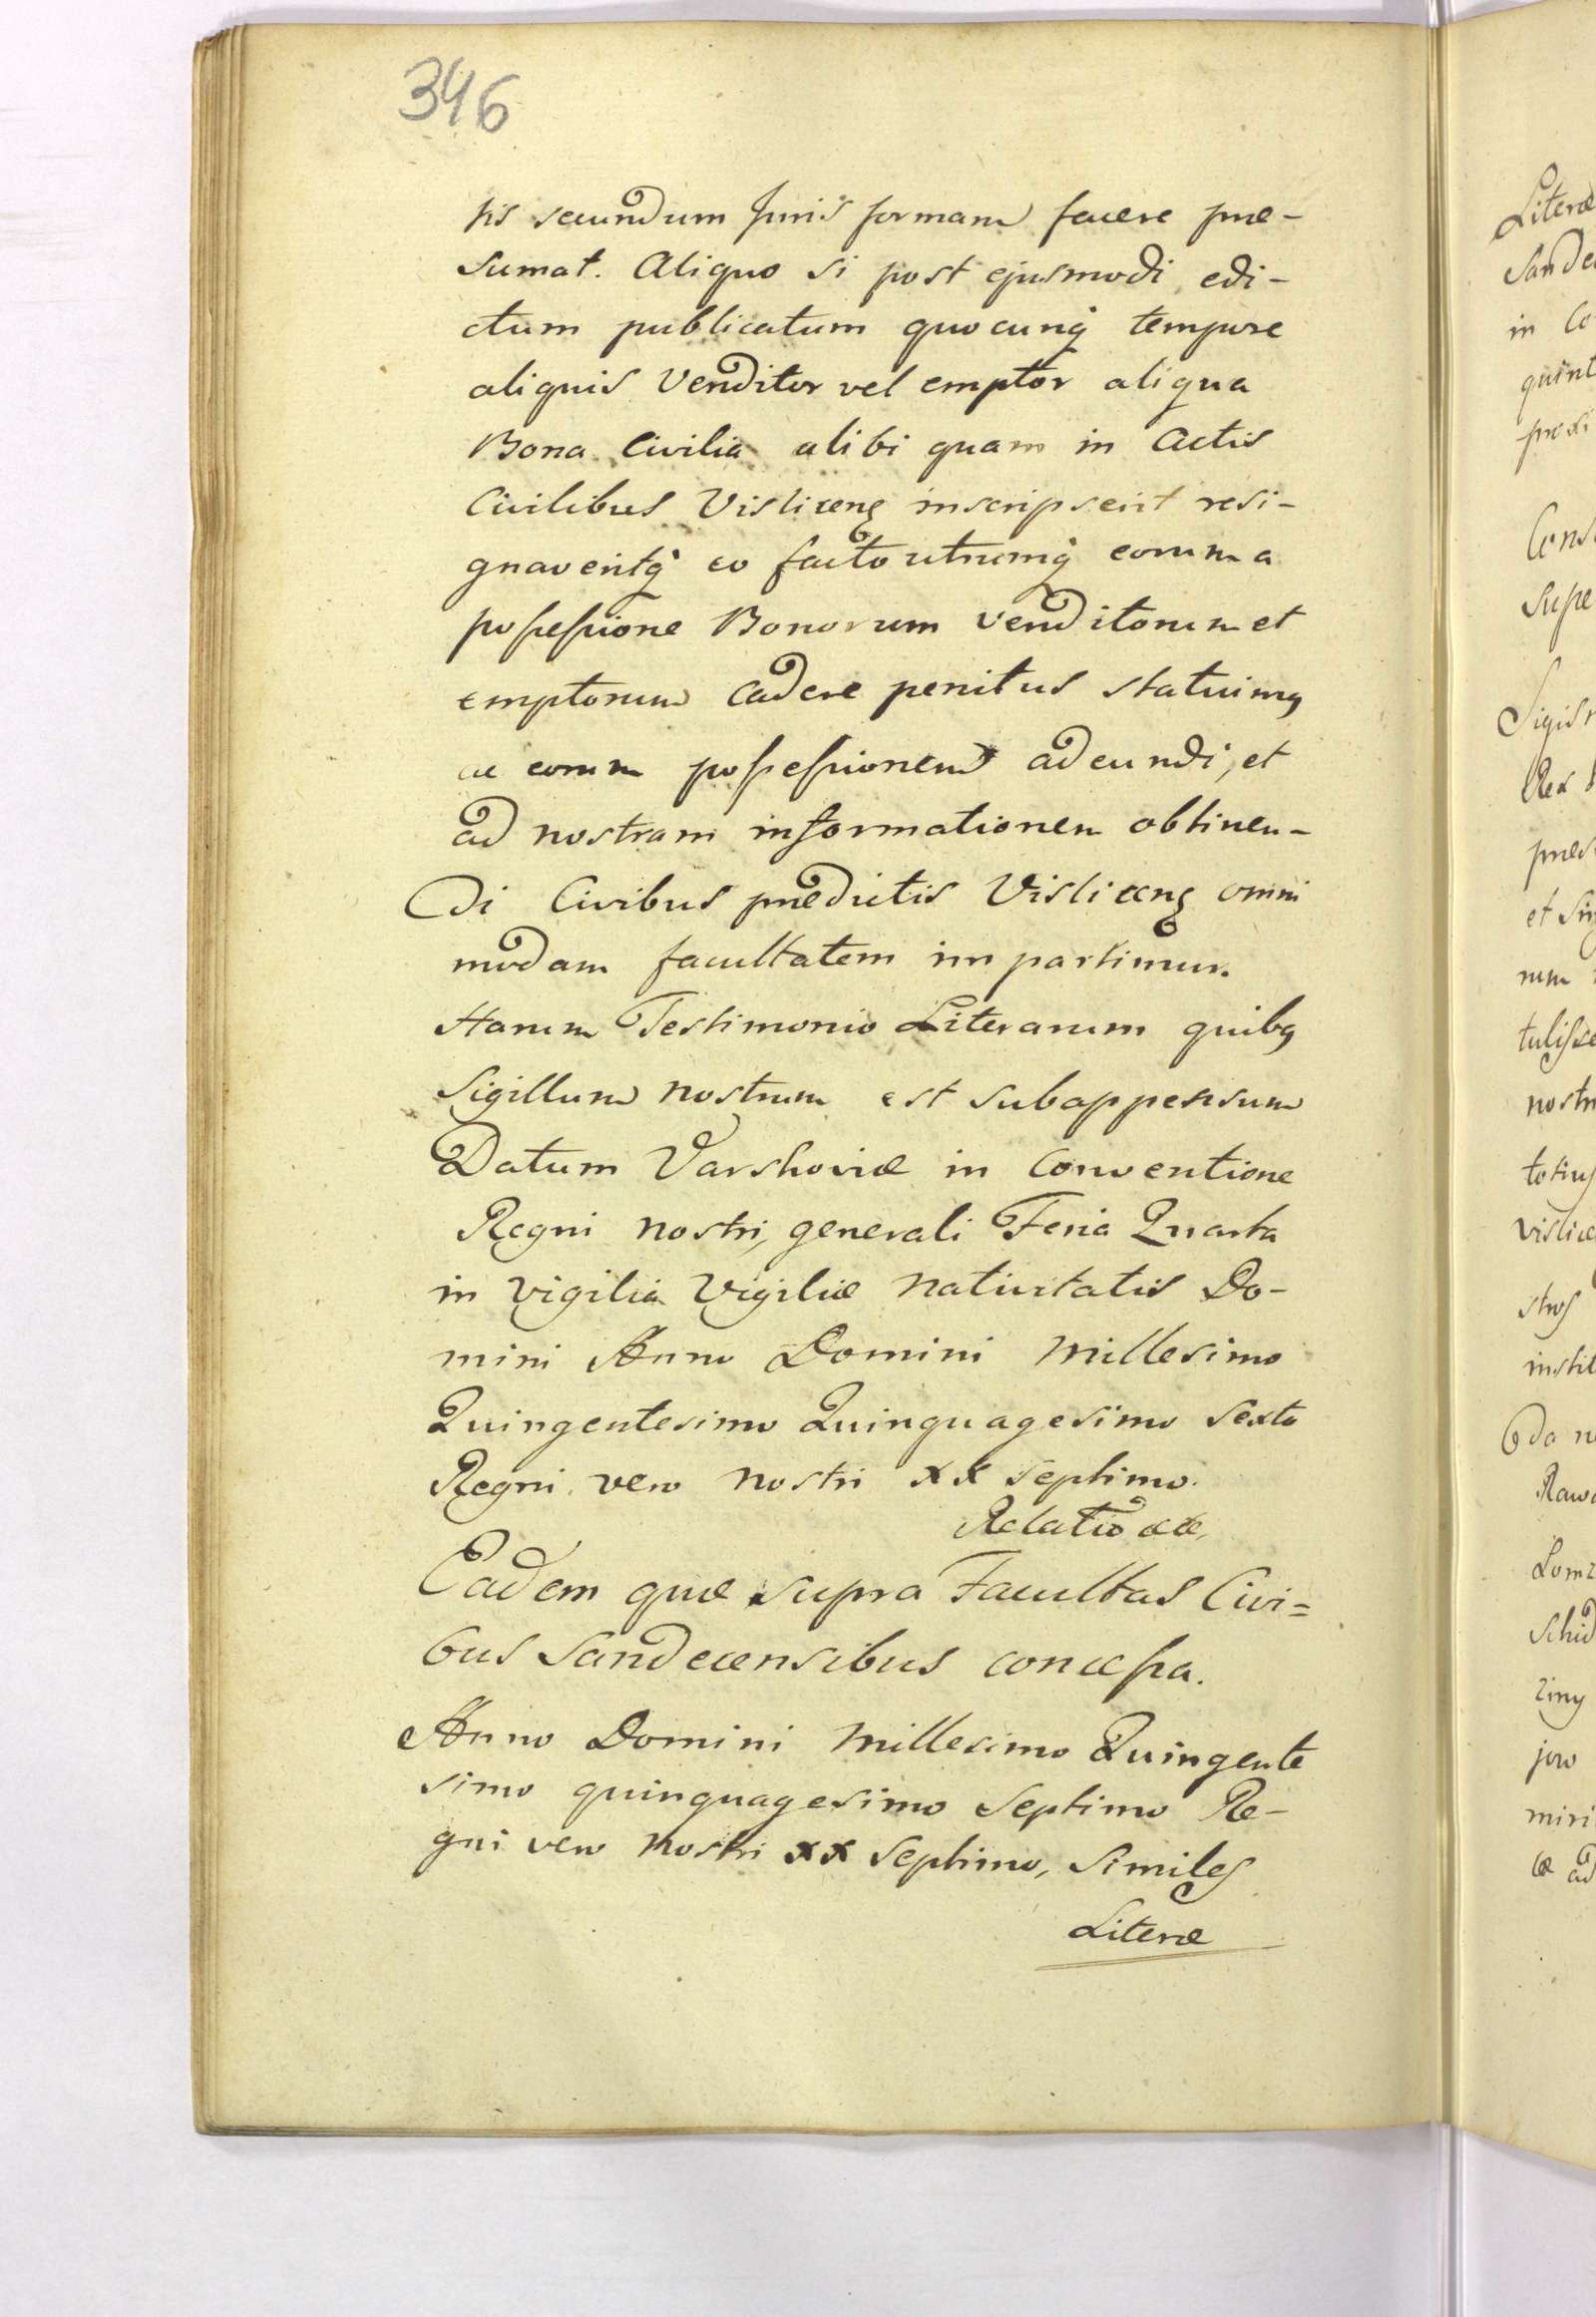 346
sis secundum Juris formam facere præ-
sumat. Aliquo si post ejusmodi edi-
ctum publicatum quocunq́ tempore
aliquis Venditor vel emptor aliqua
Bona Civilia alibi quam in Actis
Civilibus Vislicenꝫ inscripserit resi-
gnaveritq́ eo facto utrumq́ eorum a
poſseſsione Bonorum venditorum et
emptorum cadere penitus statuimꝯ
ac eorum poſseſsionem adeundi, et
ad nostram informationem obtinen-
di Civibus prædictis Vislicenꝫ omni
modam facultatem impartimur.
Harum Testimonio Literarum quibꝯ
Sigillum nostrum est subappensum
Datum Varshoviæ in Conventione
Regni nostri, generali Feria Quarta
in vigilia Vigiliæ Nativitatis Do-
mini Anno Domini Millesimo
Quingentesimo Quinquagesimo Sexto
Regni vero nostri XX septimo.
Relatio
Eadem quæ supra Facultas Civi=
bus Sandecensibus conceſsa.
Anno Domini Millesimo Quingente
simo quinquagesimo Septimo Re-
gni vero Nostri XX Septimo, Similes
Literæ
Literæ
Sande
in Co
quint
Cons
Supe
Sigis
Rex
præs
et Sin
rum
tulisse
nostr
totius
Vislice
stros
instit
Rawa
Lomz
Schid
ziny
jero
miri